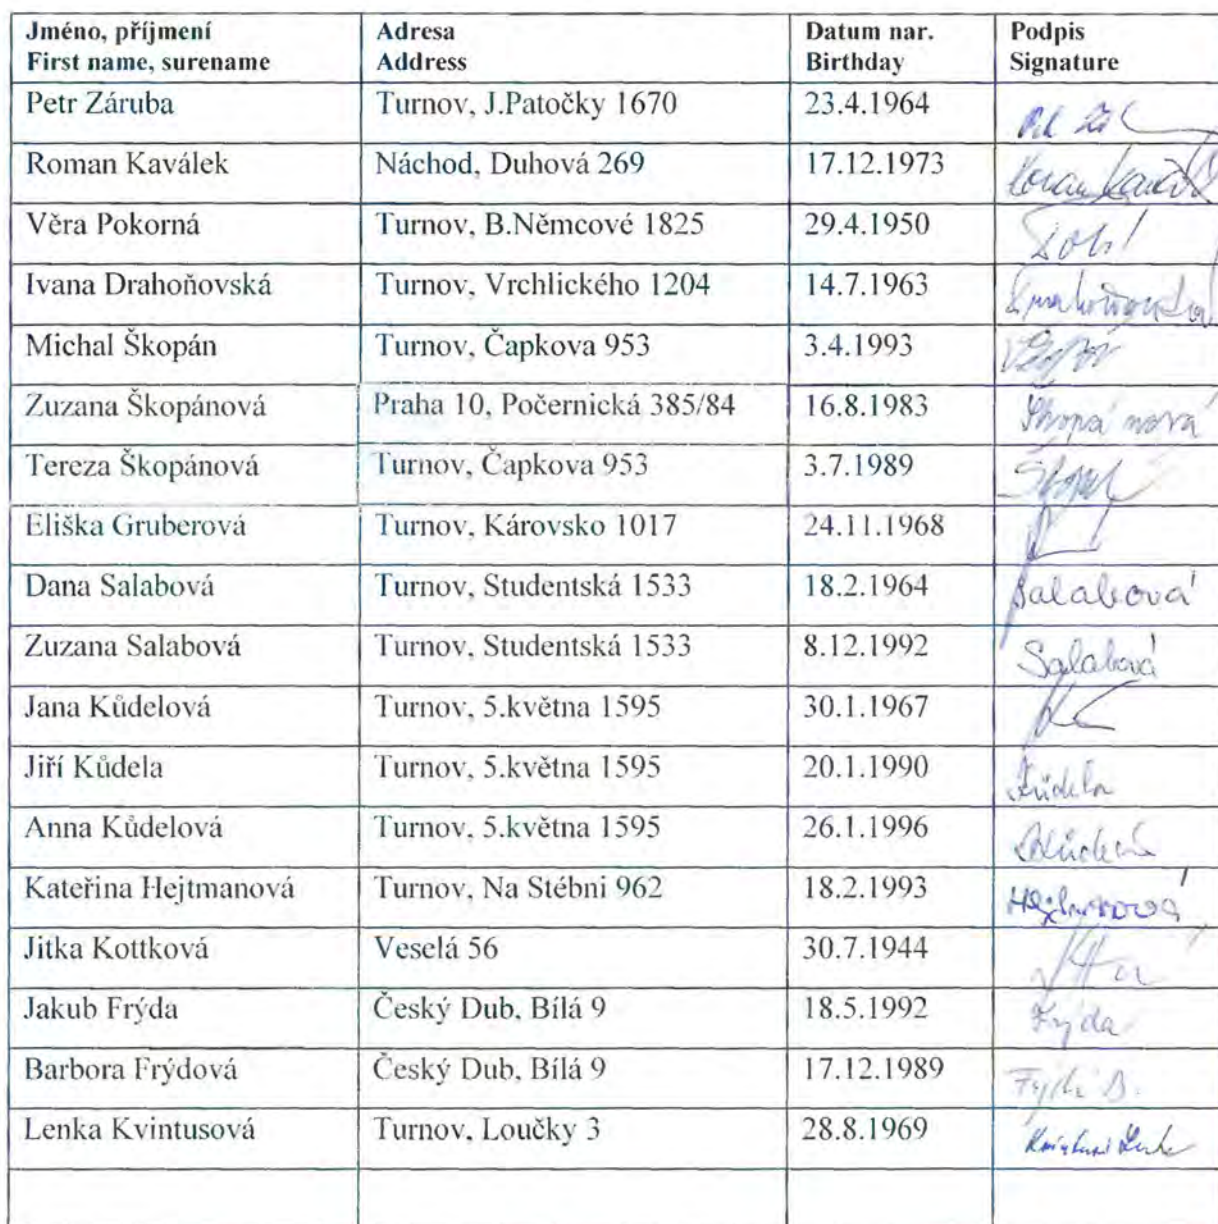 Jméno, příjmení Adresa Datum nar. Podpis
First name, surename Address Birthday Signature
Petr Záruba Turnov, J.Patočky 1670 23.4.1964
Roman Kaválek Náchod, Duhová 269 17.12.1973
Věra Pokorná Turnov, B.Němcové 1825 29.4.1950
Ivana Drahoňovská Turnov, Vrchlického 1204 14.7.1963
Michal Škopán Turnov, Čapkova 953 3.4.1993
Zuzana Škopánová Praha 10, Počernická 385/84 16.8.1983 Škopánová
Tereza Škopánová Turnov, Čapkova 953 3.7.1989
Eliška Gruberová Turnov, Károvsko 1017 24.11.1968
Dana Salabová Turnov, Studentská 1533 18.2.1964 Salabová
Zuzana Salabová Turnov, Studentská 1533 8.12.1992 Salabová
Jana Kůdelová Turnov, 5.května 1595 30.1.1967
Jiří Kůdela Turnov, 5.května 1595 20.1.1990 Kůdela
Anna Kůdelová Turnov, 5.května 1595 26.1.1996
Kateřina Hejtmanová Turnov, Na Stébni 962 18.2.1993 Hejtmanová
Jitka Kottková Veselá 56 30.7.1944
Jakub Frýda Český Dub, Bílá 9 18.5.1992 Frýda
Barbora Frýdová Český Dub, Bílá 9 17.12.1989
Lenka Kvintusová Turnov, Loučky 3 28.8.1969